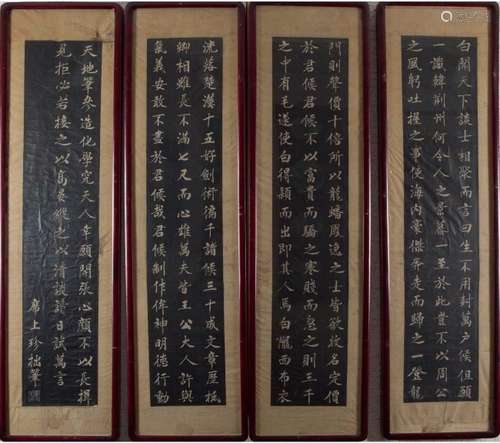 白聞天下談士相聚而言曰生不用封萬戶侯但願
一識韓荊州何令人之景慕一至於此豈不以周公
之風躬吐握之事使海內豪傑奔走而歸之一登龍
門則聲價十倍所以龍蟠鳳逸之士皆欲收名定價
於君侯君侯不以富貴而驕之寒賤而忽之則三千
之中有毛遂使白得穎而出即其人焉白隴西布衣
流落楚漢十五好劍術徧干諸侯三十成文章歷抵
卿相雖長不滿七尺而心雄萬夫皆王公大人許與
氣義安敢不盡於君侯哉君侯制作侔神明德行動
天地筆參造化學究天人幸願開張心顏不以長揖
見拒必若接之以高宴縱之以清談請日試萬言
席上珍拙筆